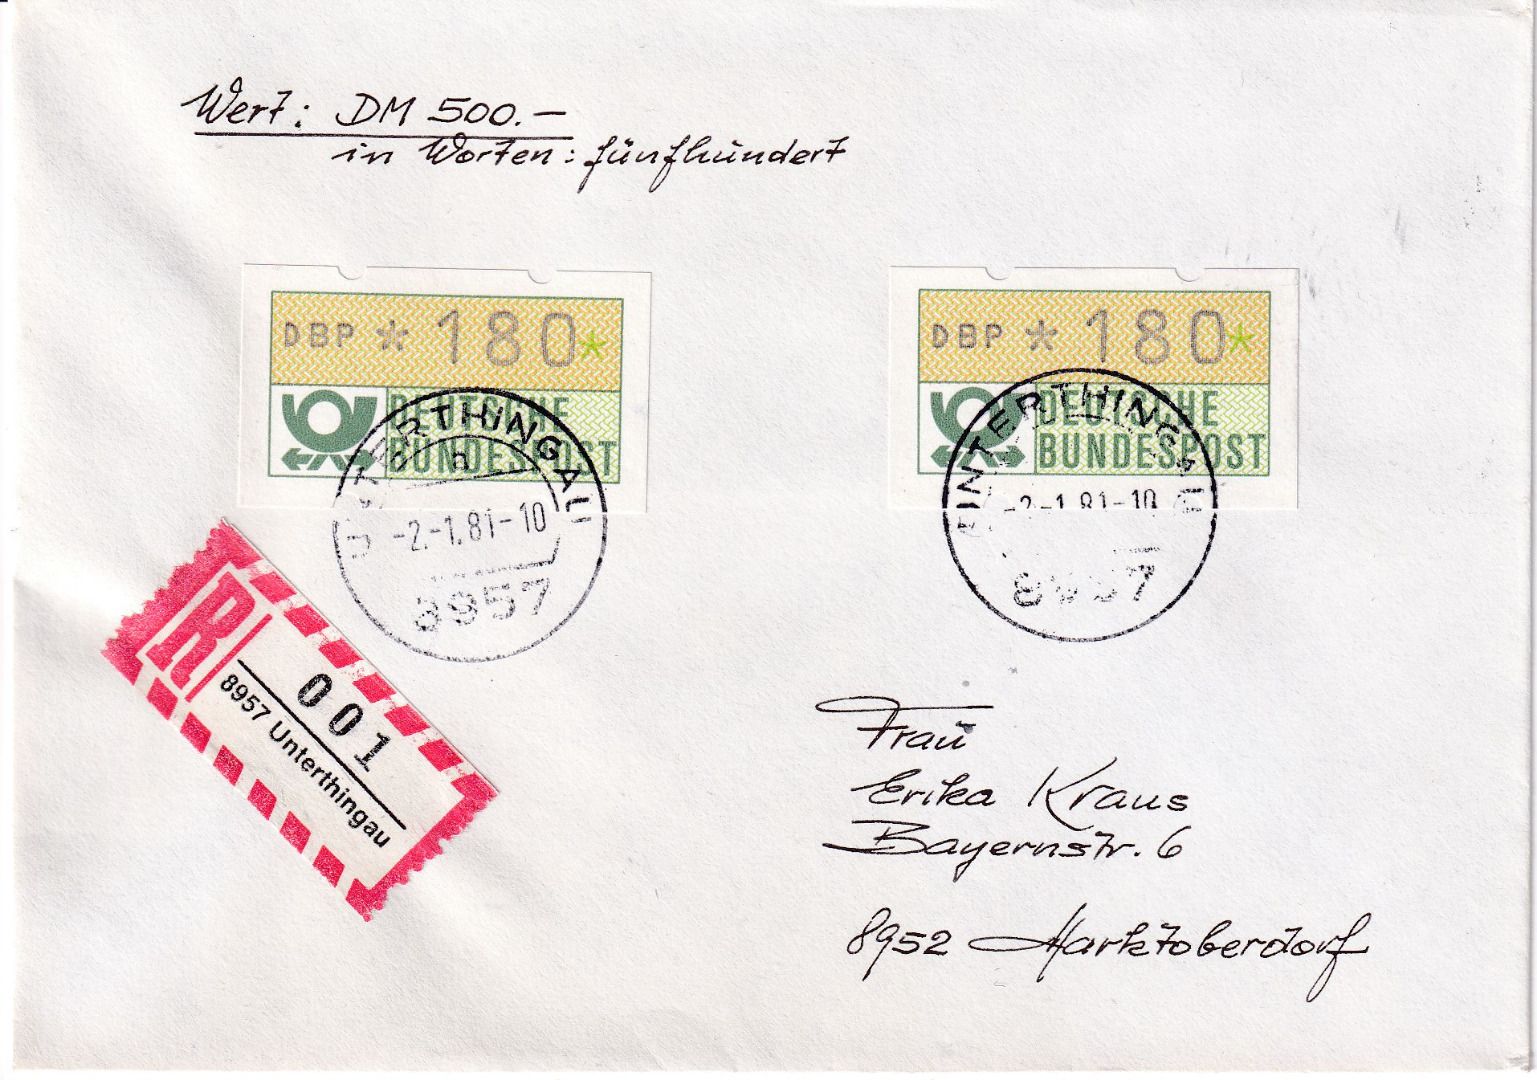 Wert: DM 500.-
in Worten: fünfhundert
DBP * 180*
DEUTSCHE
BUNDESPOST
DBP * 180*
DEUTSCHE
BUNDESPOST
UNTERTHINGAU
a
-2.-1.81-10
8957
UNTERTHINGAU
-2.-1.81-10
8957
R
001
8957 Unterthingau
Frau
Erika Kraus
Bayernstr. 6
8952 Marktoberdorf